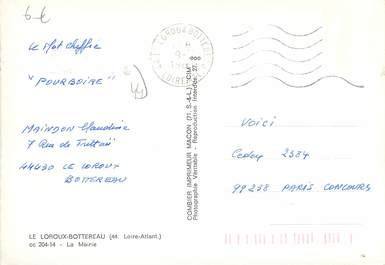 6 €
Le Mot Chiffre
"POURBOIRE"
MAINDON Claudine
7 Rue de
44430 LE LOROUX
BOTTEREAU
LE LOROUX-BOTTEREAU (44. Loire-Atlant.)
cc 204-14 - La Mairie
COMBIER IMPRIMEUR MACON (71. S.-&-L.) "CIM"
Photographie Véritable - Reproduction Interdite
LE LOROUX BOTTEREAU
VOICI
Cedex 2384
99238 PARIS CONCOURS